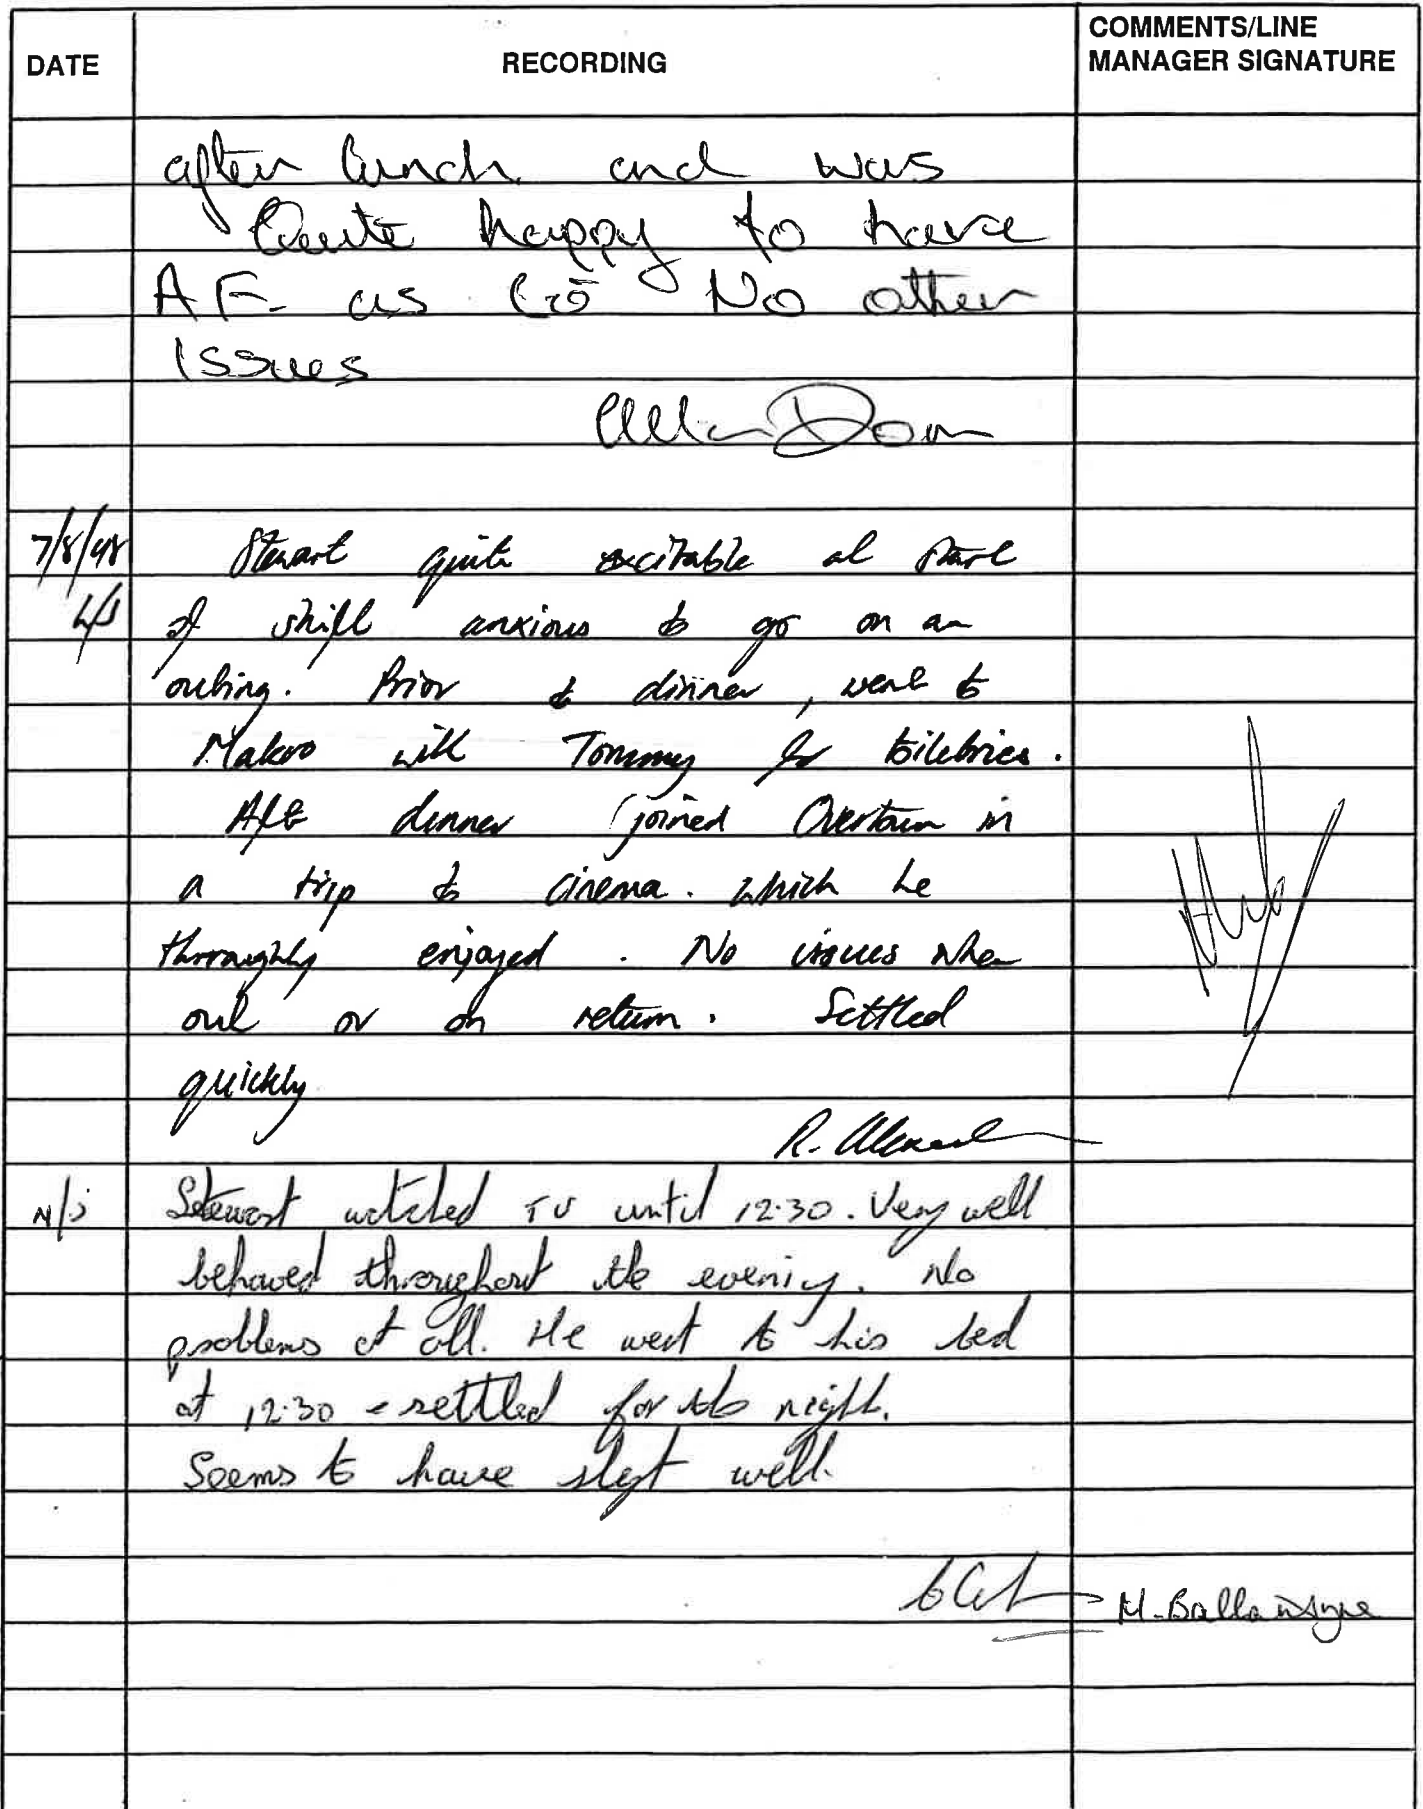 DATE
RECORDING
COMMENTS/LINE
MANAGER SIGNATURE
after lunch. and was
Quite happy to have
A F- as No other
Issues
7/8/98
L/S
Stewart quite excitable at start
of shift anxious to go on an
outing. Prior to dinner, went to
Makro with Tommy for toiletries.
Aft dinner joined Overtoun in
a trip to cinema. which he
throughly enjoyed. No issues when
out or on return. Settled
quickly
R.
N/S
Stewart watched TV until 12.30. Very well
behaved throughout the evening. No
problems at all. He went to his bed
at 12.30 - settled for the night.
Seems to have slept well.
M. Ballantyne